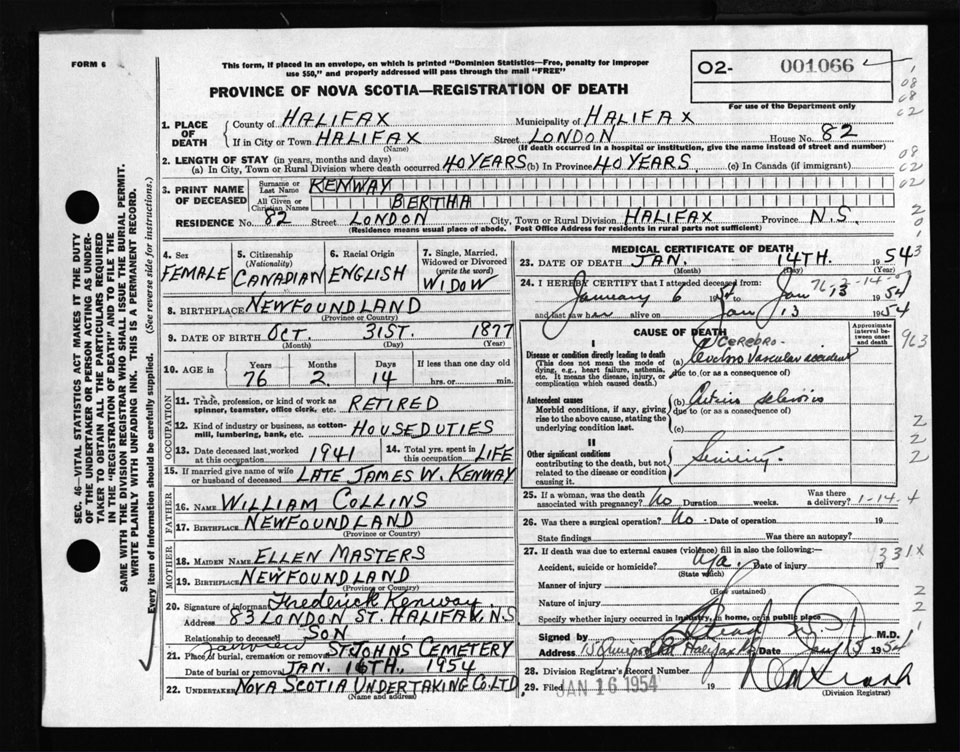 FORM 6
This form, if placed in an envelope, on which is printed "Dominion Statistics—Free, penalty for improper
use $50," and properly addressed will pass through the mail "FREE"
PROVINCE OF NOVA SCOTIA—REGISTRATION OF DEATH
O2- 001066
For use of the Department only
1. PLACE OF DEATH
County of HALIFAX Municipality of HALIFAX
If in City or Town HALIFAX Street LONDON House No. 82
(Name) (If death occurred in a hospital or institution, give the name instead of street and number)
2. LENGTH OF STAY (in years, months and days)
(a) In City, Town or Rural Division where death occurred 40 YEARS (b) In Province 40 YEARS (c) In Canada (if immigrant)
3. PRINT NAME OF DECEASED
Surname or Last Name KENWAY
All Given or Christian Names BERTHA
RESIDENCE No. 82 Street LONDON City, Town or Rural Division HALIFAX Province N.S.
(Residence means usual place of abode. Post Office Address for residents in rural parts not sufficient)
4. Sex FEMALE
5. Citizenship (Nationality) CANADIAN
6. Racial Origin ENGLISH
7. Single, Married, Widowed or Divorced (write the word) WIDOW
8. BIRTHPLACE NEWFOUNDLAND
(Province or Country)
9. DATE OF BIRTH OCT. 31ST. 1877
(Month) (Day) (Year)
10. AGE in Years 76 Months 2 Days 14 If less than one day old
hrs. or min.
OCCUPATION
11. Trade, profession, or kind of work as
spinner, teamster, office clerk, etc. RETIRED
12. Kind of industry or business, as cotton-
mill, lumbering, bank, etc. HOUSEDUTIES
13. Date deceased last worked at this occupation 1941
14. Total yrs. spent in this occupation LIFE
15. If married give name of wife
or husband of deceased LATE JAMES W. KENWAY
FATHER
16. Name WILLIAM COLLINS
17. Birthplace NEWFOUNDLAND
(Province or Country)
MOTHER
18. Maiden Name ELLEN MASTERS
19. Birthplace NEWFOUNDLAND
(Province or Country)
20. Signature of informant Frederick Kenway
Address 83 LONDON ST. HALIFAX, N.S
Relationship to deceased SON
21. Place of burial, cremation or removal Fairview ST JOHNS CEMETERY
Date of burial or removal JAN. 16TH., 1954
22. UNDERTAKER NOVA SCOTIA UNDERTAKING CO. LTD
(Name and address)
MEDICAL CERTIFICATE OF DEATH
23. DATE OF DEATH JAN. 14TH. 1954
(Month) (Day) (Year)
24. I HEREBY CERTIFY that I attended deceased from:
January 6 1954 to Jan 13 1954
and last saw h alive on Jan 13 1954
CAUSE OF DEATH
Approximate interval between onset and death
I
Disease or condition directly leading to death
(This does not mean the mode of dying, e.g., heart failure, asthenia, etc. It means the disease, injury, or complication which caused death.)
CEREBRO-
(a) Vascular accident
due to (or as a consequence of)
Antecedent causes
Morbid conditions, if any, giving rise to the above cause, stating the underlying condition last.
(b)
due to (or as a consequence of)
(c)
II
Other significant conditions
contributing to the death, but not related to the disease or condition causing it.
25. If a woman, was the death associated with pregnancy? No Duration weeks. Was there a delivery?
26. Was there a surgical operation? No Date of operation 19
State findings Was there an autopsy?
27. If death was due to external causes (violence) fill in also the following:—
Accident, suicide or homicide? Date of injury 19
(State which)
Manner of injury
(How sustained)
Nature of injury
Specify whether injury occurred in industry, in home, or in public place
Signed by M.D.
Address Halifax Date Jan 15 1954
28. Division Registrar's Record Number
29. Filed JAN 16 1954 19
(Division Registrar)
SEC. 46—VITAL STATISTICS ACT MAKES IT THE DUTY
OF THE UNDERTAKER OR PERSON ACTING AS UNDER-
TAKER TO OBTAIN ALL THE PARTICULARS REQUIRED
IN THE "REGISTRATION OF DEATH" AND TO FILE THE
SAME WITH THE DIVISION REGISTRAR WHO SHALL ISSUE THE BURIAL PERMIT.
WRITE PLAINLY WITH UNFADING INK. THIS IS A PERMANENT RECORD.
Every item of Information should be carefully supplied. (See reverse side for instructions.)